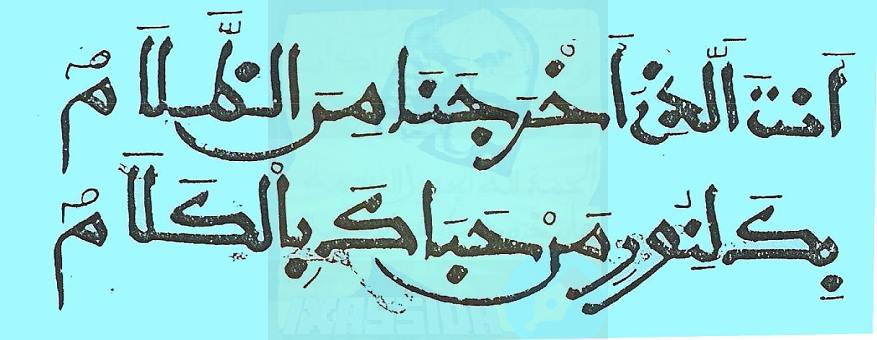 أَنتَ الَّذِي أَخْرَجَنَا مِنَ الظَّلَامْ
بِكَ لِنُورِ مَنْ حَبَاكَ بِالْكَلَامْ